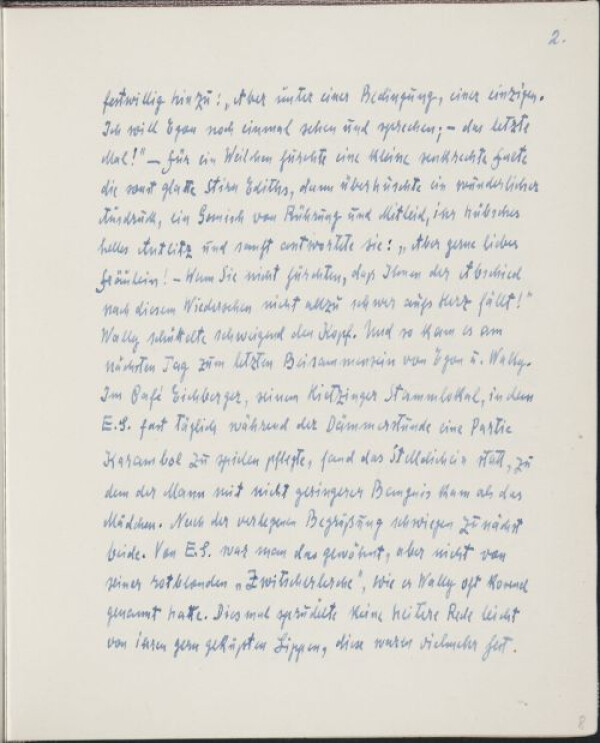 2.
festwillig hinzu: „Aber unter einer Bedingung, einer einzigen.
Ich will Egon noch einmal sehen und sprechen; – das letzte
Mal!" – Für ein Weilchen furchte eine kleine senkrechte Falte
die sonst glatte Stirn Ediths, dann überhuschte ein wunderlicher
Ausdruck, ein Gemisch von Rührung und Mitleid, ihr hübsches
helles Antlitz und sanft antwortete sie: „Aber gerne lieber
Fräulein! – Wenn Sie nicht fürchten, daß Ihnen der Abschied
nach diesem Wiedersehen nicht allzu schwer aufs Herz fällt!"
Wally schüttelte schweigend den Kopf. Und so kam es am
nächsten Tag zum letzten Beisammensein von Egon u. Wally.
Im Café Eichberger, seinem Hietzinger Stammlokal, in dem
E.S. fast täglich während der Dämmerstunde eine Partie
Karambol zu spielen pflegte, fand das Stelldichein statt, zu
dem der Mann mit nicht geringerer Bangnis kam als das
Mädchen. Nach der verlegenen Begrüßung schwiegen zunächst
beide. Von E.S. war man das gewöhnt, aber nicht von
seiner rotblonden „Zwitscherlerche", wie er Wally oft kosend
genannt hatte. Diesmal sprudelte keine heitere Rede leicht
von ihren gern geküßten Lippen, diese waren vielmehr fest.
8